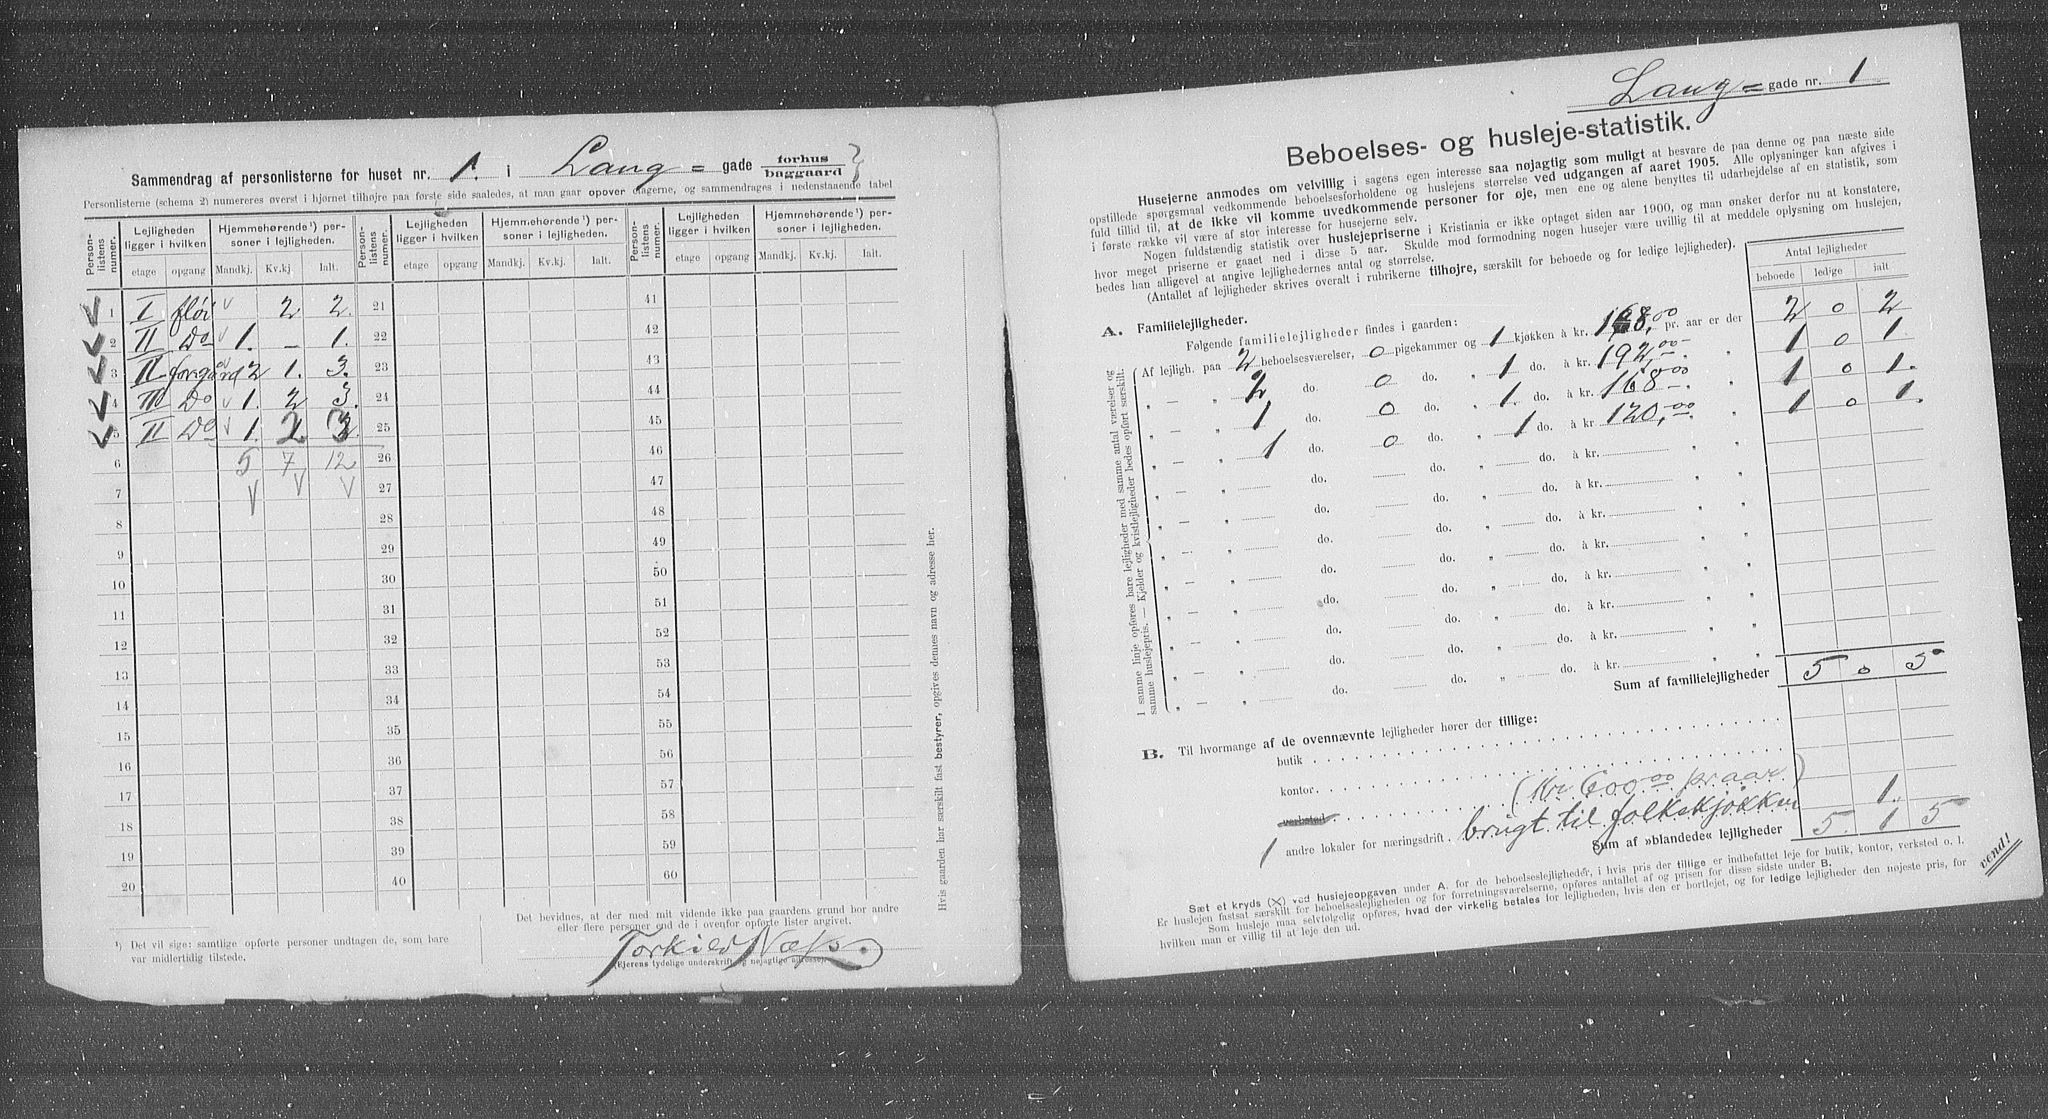 Sammendrag af personlisterne for huset nr. 1. i Lang= gade forhus baggaard }
Personlisterne (schema 2) numereres øverst i hjørnet tilhøjre paa første side saaledes, at man gaar opover etagerne, og sammendrages i nedenstaaende tabel
Person-listens numer. Lejligheden ligger i hvilken Hjemmehørende¹) personer i lejligheden. Person-listens numer. Lejligheden ligger i hvilken Hjemmehørende¹) personer i lejligheden. Person-listens numer. Lejligheden ligger i hvilken Hjemmehørende¹) personer i lejligheden.
etage opgang Mandkj. Kv.kj. Ialt. etage opgang Mandkj. Kv.kj. Ialt. etage opgang Mandkj. Kv.kj. Ialt.
1 I fløi 2 2. 21 41
2 II Do 1. – 1. 22 42
3 II forgård 2 1. 3. 23 43
4 III Do 1. 2 3. 24 44
5 II Do 1. 2 3 25 45
6 5 7 12 26 46
7 V V V 27 47
8 28 48
9 29 49
10 30 50
11 31 51
12 32 52
13 33 53
14 34 54
15 35 55
16 36 56
17 37 57
18 38 58
19 39 59
20 40 60
Hvis gaarden har særskilt fast bestyrer, opgives dennes navn og adresse her.
¹) Det vil sige: samtlige opførte personer undtagen de, som bare
var midlertidig tilstede.
Det bevidnes, at der med mit vidende ikke paa gaardens grund bor andre
eller flere personer end de i ovenfor opførte lister angivet.
Torkild Næss.
(Ejerens tydelige underskrift og nøjagtige adresse)
Lang= gade nr. 1
Beboelses- og husleje-statistik.
Husejerne anmodes om velvillig i sagens egen interesse saa nøjagtig som muligt at besvare de paa denne og paa næste side
opstillede spørgsmaal vedkommende beboelsesforholdene og huslejens størrelse ved udgangen af aaret 1905. Alle oplysninger kan afgives i
fuld tillid til, at de ikke vil komme uvedkommende personer for øje, men ene og alene benyttes til udarbejdelse af en statistik, som
i første række vil være af stor interesse for husejerne selv.
Nogen fuldstændig statistik over huslejepriserne i Kristiania er ikke optaget siden aar 1900, og man ønsker derfor nu at konstatere,
hvor meget priserne er gaaet ned i disse 5 aar. Skulde mod formodning nogen husejer være uvillig til at meddele oplysning om huslejen,
bedes han alligevel at angive lejlighedernes antal og størrelse.
(Antallet af lejligheder skrives overalt i rubrikerne tilhøjre, særskilt for beboede og for ledige lejligheder).
Antal lejligheder
beboede ledige ialt
A. Familielejligheder.
Følgende familielejligheder findes i gaarden:
Af lejligh. paa 2 beboelsesværelser, 0 pigekammer og 1 kjøkken à kr. 168,00 pr. aar er der 2 0 2
„ — „ 2 do. 0 do. „ 1 do. à kr. 192,00 „ 1 0 1
„ — „ 1 do. 0 do. „ 1. do. à kr. 168,00 „ 1 0 1.
„ — „ 1 do. 0 do. „ 1 do. à kr. 120,00 „ 1 0 1.
„ — „ do. do. „ do. à kr. „
„ — „ do. do. „ do. à kr. „
„ — „ do. do. „ do. à kr. „
„ — „ do. do. „ do. à kr. „
„ — „ do. do. „ do. à kr. „
„ — „ do. do. „ do. à kr. „
„ — „ do. do. „ do. à kr. „
„ — „ do. do. „ do. à kr. „
I samme linje opføres bare lejligheder med samme antal værelser og
samme huslejepris. — Kjelder og kvistlejligheder bedes opført særskilt.
Sum af familielejligheder 5 0 5
B. Til hvormange af de ovennævnte lejligheder hører der tillige:
butik
kontor
verksted (Kr 600.00 pr aar.)
1 andre lokaler for næringsdrift. brugt til folkekjøkken 1.
Sum af »blandede« lejligheder 5. 1 5
Sæt et kryds (X) ved huslejeopgaven under A. for de beboelseslejligheder, i hvis pris der tillige er indbefattet leje for butik, kontor, verksted o. l.
Er huslejen fastsat særskilt for beboelseslejligheden og for forretningsværelserne, opføres antallet af og prisen for disse sidste under B.
Som husleje maa selvfølgelig opføres, hvad der virkelig betales for lejligheden, hvis den er bortlejet, og for ledige lejligheder den nøjeste pris, for
hvilken man er villig til at leje den ud.
vend!